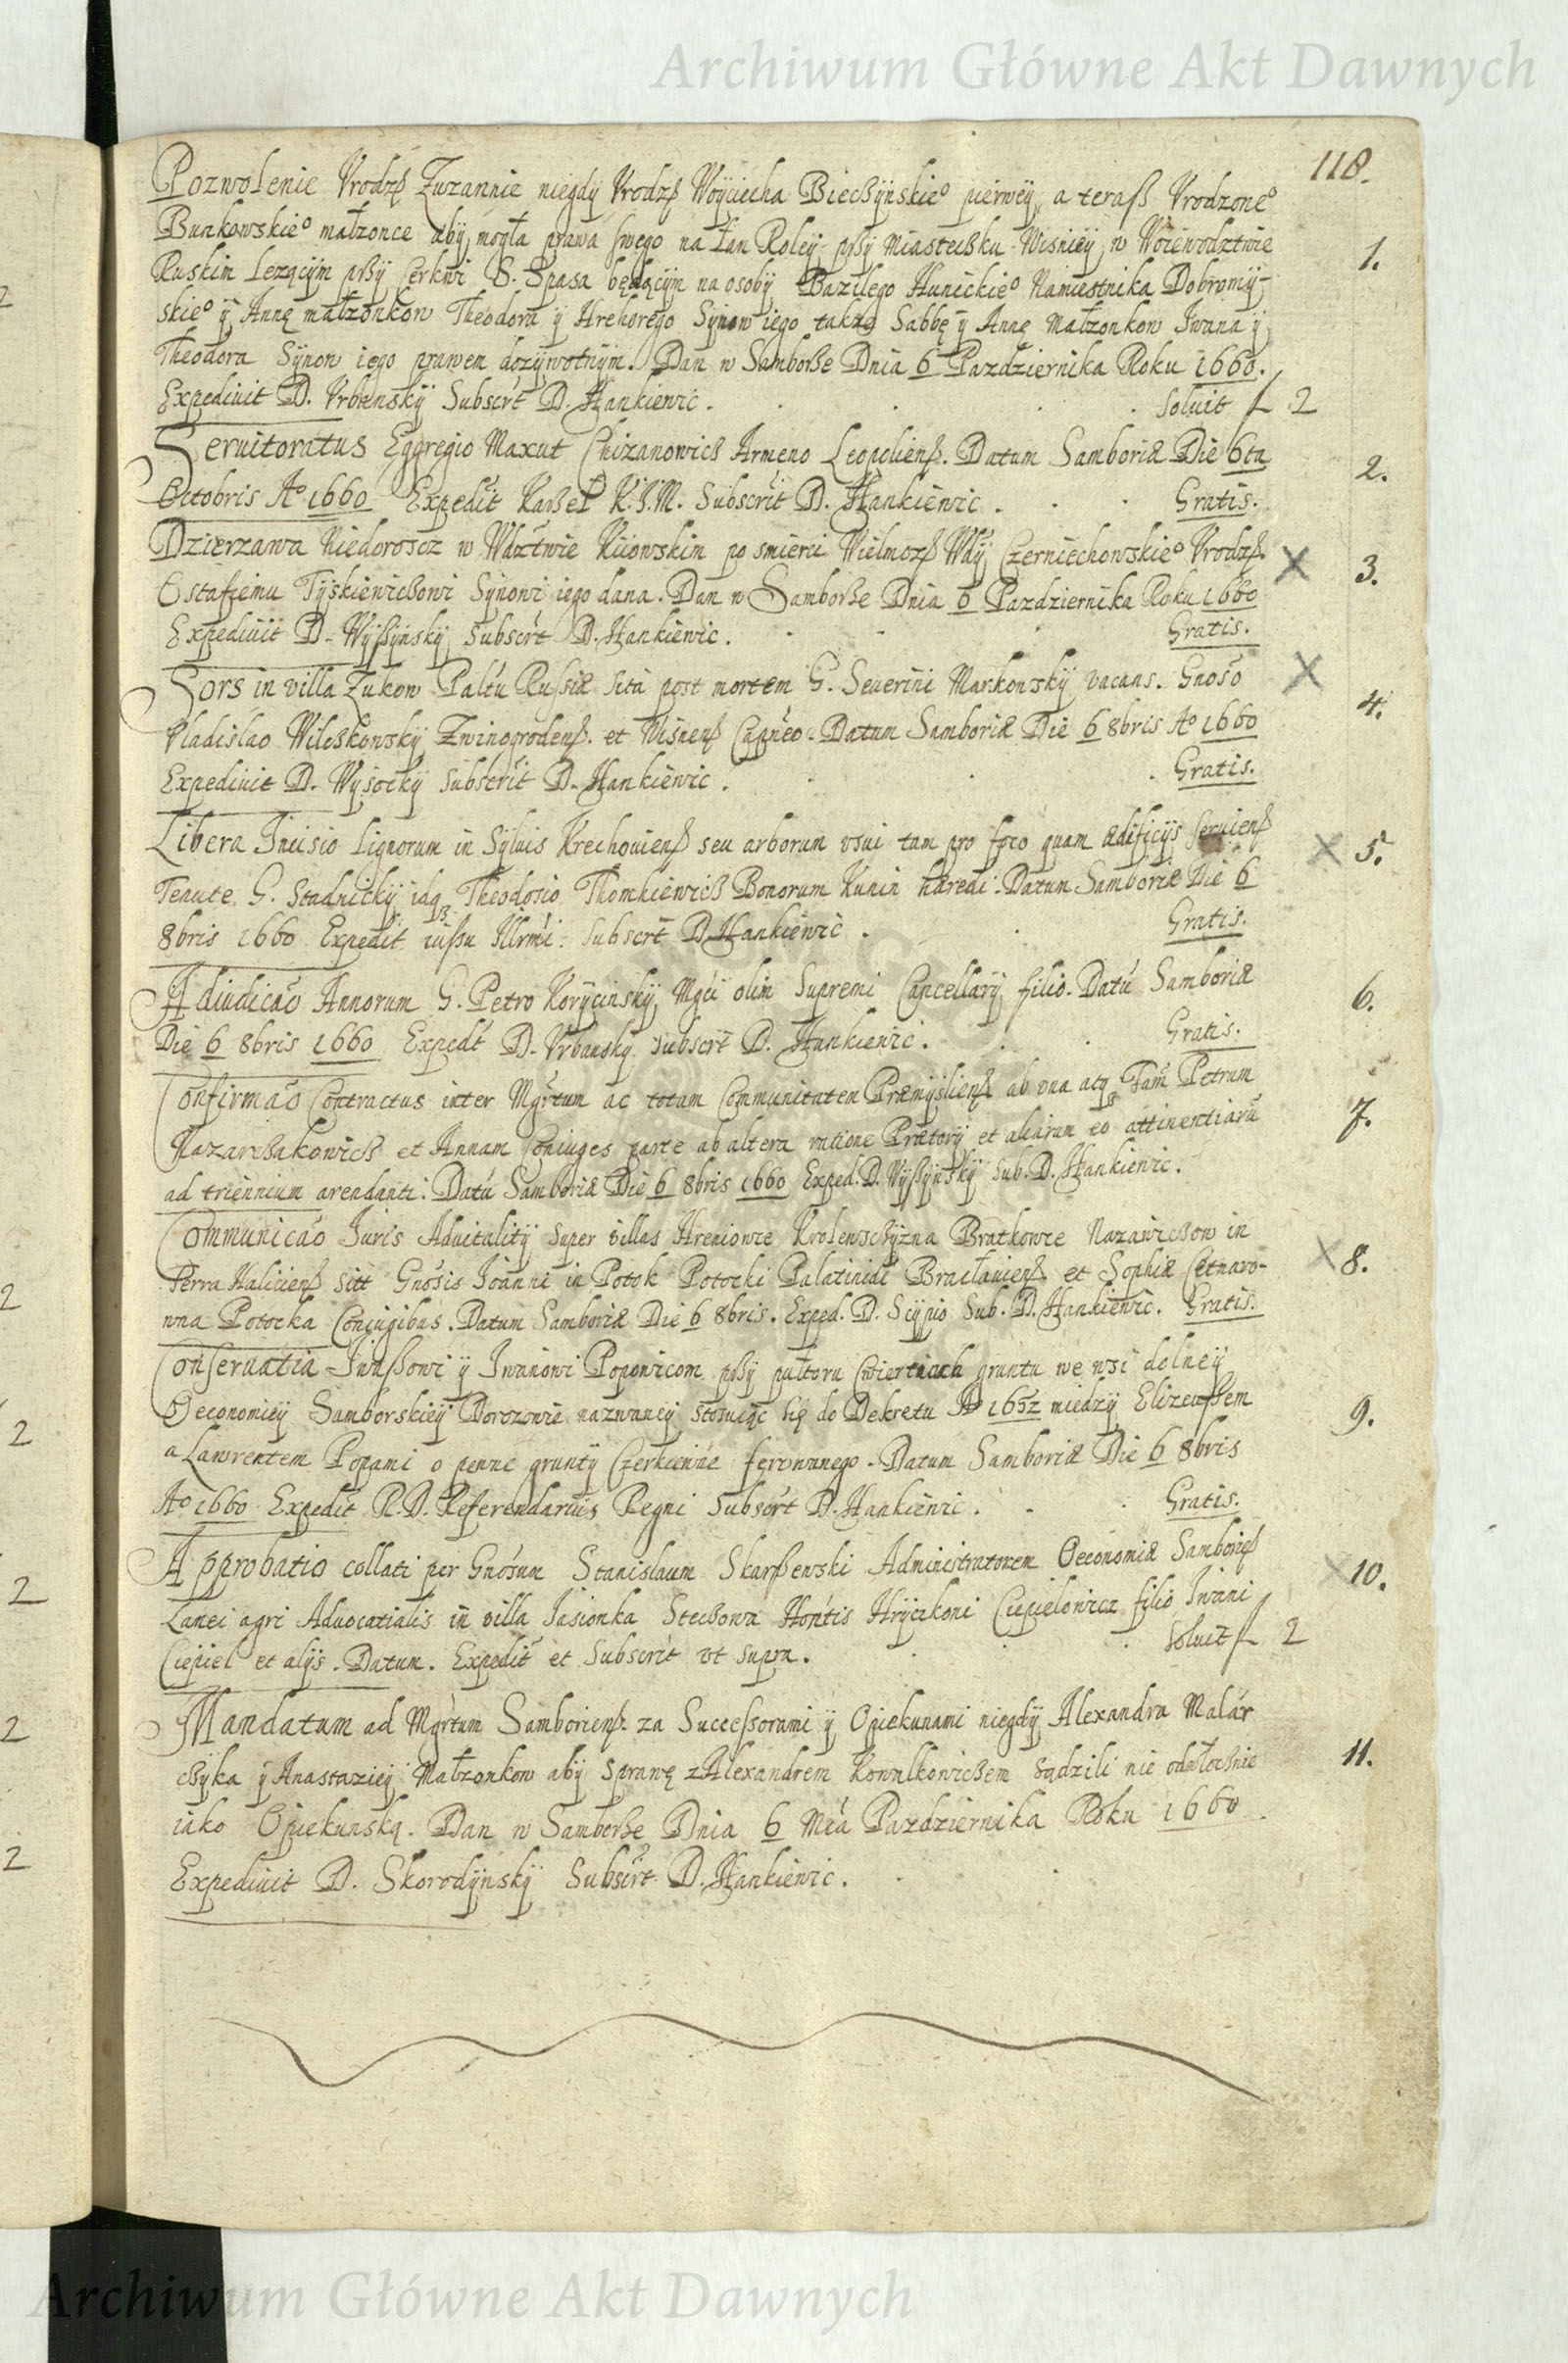 Archiwum Główne Akt Dawnych
118.
Pozwolenie Vrodzß Zuzannie niegdÿ Vrodzß Woÿciecha Biecßÿnskie° pierweÿ, a teraß Vrodzone°
Bunkowskie° małzonce abÿ mogła prawa swego na Łan Roleÿ pßÿ Miastecßku Wisnieÿ w Woiewodztwie 1.
Ruskim Lezącÿm pßÿ Cerkwi S. Spasa będącÿm na osobÿ Bazilego Hunickie° Namiestnika Dobromÿ-
skie° ÿ Annę małzonkow Theodora ÿ Hrehorego Sÿnow iego takze Sabbę ÿ Annę Małzonkow Iwana ÿ
Theodora Sÿnow iego prawem dozÿwotnÿm. Dan w Samborße Dnia 6 Pazdziernika Roku 1660.
Expediuit D. Vrbanskÿ Subscrt D. Hankiewic. Soluit f 2
Seruitoratus Eggregio Maxut Chizanowicß Armeno Leopolienß. Datum Samboriæ Die 6ta 2.
Octobris A° 1660 Expedit Kaßel K.J.M. Subscrit D. Hankiewic. Gratis.
Dzierzawa Niedoroscz w Wdztwie Kiiowskim po smierci Wielmozß Wdÿ Czerniechowskie° Vrodzß. X 3.
Ostafiemu Tÿskiewicßowi Sÿnowi iego dana. Dan w Samborße Dnia 6 Pazdziernika Roku 1660
Expediuit D. Wÿßÿnskÿ Subscrt D. Hankiewic. Gratis.
Sors in villa Zukow Paltu Russiæ sita post mortem G. Seuerini Markowskÿ vacans. Gnoso X 4.
Vladislao Wilcßkowskÿ Zwinogrodenß. et Wisnenß Capneo. Datum Samboriæ Die 6 8bris A° 1660
Expediuit D. Wÿsockÿ Subscrit D. Hankiewic. Gratis.
Libera Incisio Lignorum in Sÿluis Krechouienß seu arborum vsui tam pro foco quam ædificÿs seruienß X 5.
Tenute G. Stadnickÿ idq Theodosio Thomkiewicß Bonorum Kunin hæredi. Datum Samboriæ Die 6
8bris 1660 Expedit iussu Illrmi. Subscrt D. Hankiewic. Gratis.
Adiudicao Annorum G. Petro Korÿcinskÿ Mgci olim Supremi Cancellarÿ filio. Datu Samboriæ 6.
Die 6 8bris 1660 Expedt D. Vrbanskÿ Subscrt D. Hankiewic. Gratis.
Confirmao Contractus inter Mgrtum ac totam Communitatem Præmÿslienß ab vna atq Fam Petrum
Nazarcßakowicß et Annam Coniuges parte ab altera ratione Prætorÿ et aliarum eo attinentiaru 7.
ad triennium arendanti. Datu Samboriæ Die 6 8bris 1660 Exped. D. Wÿßÿnskÿ Sub. D. Hankiewic.
Communicao Iuris Aduitalitÿ super villas Hreniowce Krolewscßÿzna Bratkowce Nazawicßow in X 8.
Terra Halicienß sitt Gnosis Ioanni in Potok Potocki Palatinidi Bracławienß et Sophiæ Cetnaro-
wna Potocka Coniugibus. Datum Samboriæ Die 6 8bris. Exped. D. Scÿpio Sub. D. Hankiewic. Gratis.
Conseruatia Iwaßowi ÿ Iwanowi Popowicom pßÿ pułtoru Cwiertniach gruntu we wsi dolneÿ
Oeconomieÿ Samborskieÿ Dorozowie nazwaneÿ stosuiąc się do Dekretu A° 1652 miedzÿ Elizeußem 9.
a Lawrentem Popami o pewne gruntÿ Czerkiewne ferowanego. Datum Samboriæ Die 6 8bris
A° 1660 Expedit R.D. Referendarius Regni Subscrt D. Hankiewic. Gratis.
Approbatio collati per Gnosum Stanislaum Skarßewski Administratorem Oeconomiæ Samborienß X 10.
Lanei agri Aduocatialis in villa Iasionka Stecßowa Hontis Hrÿczkoni Ciepielowicz filio Iwani
Ciepiel et alÿs. Datum. Expedit et Subscrit vt supra. Soluit f 2
Mandatum ad Mgrtum Samborienß za Successorami ÿ Opiekunami niegdÿ Alexandra Malar
cßÿka ÿ Anastazieÿ Małzonkow abÿ sprawę z Alexandrem Kowalkowicßem sądzili nie odwłocßnie 11.
iako Opiekunską. Dan w Samborße Dnia 6 Mca Pazdziernika Roku 1660
Expediuit D. Skorodÿnskÿ Subscrt D. Hankiewic.
2
2
2
2
2
2
Archiwum Główne Akt Dawnych